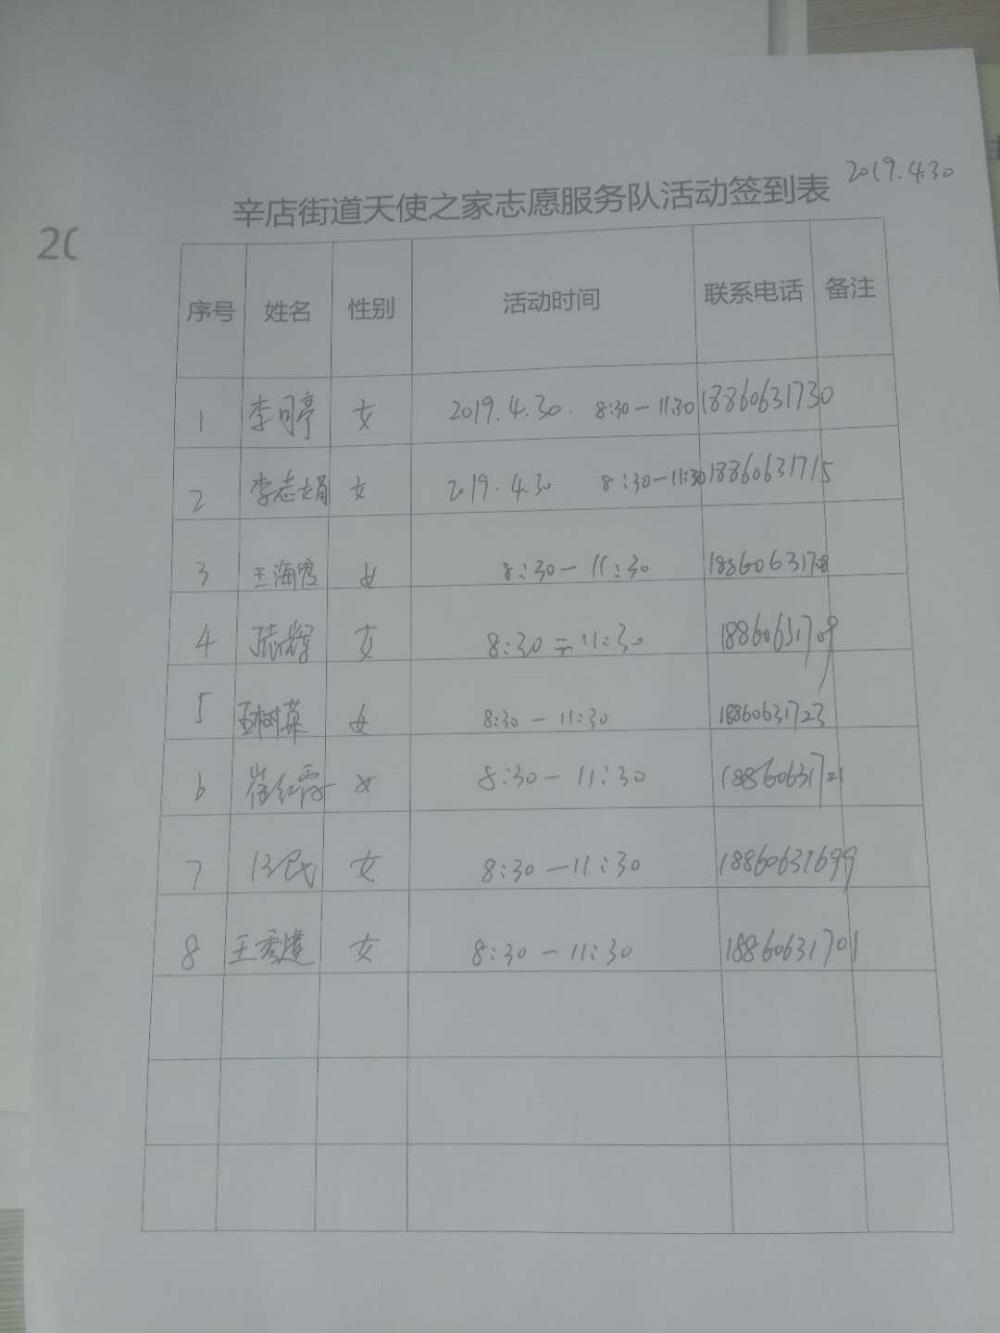 2019.4.30
辛店街道天使之家志愿服务队活动签到表
20
序号 姓名 性别 活动时间 联系电话 备注
1 李可亭 女 2019.4.30. 8:30-11:30 18860631730
2 李志娟 女 2019.4.30 8:30-11:30 18860631715
3 王海霞 女 8:30-11:30 18860631708
4 陈辉 女 8:30-11:30 18860631709
5 王树英 女 8:30-11:30 18860631723
6 崔红霞 女 8:30-11:30 18860631721
7 民 女 8:30-11:30 18860631699
8 王秀莲 女 8:30-11:30 18860631701